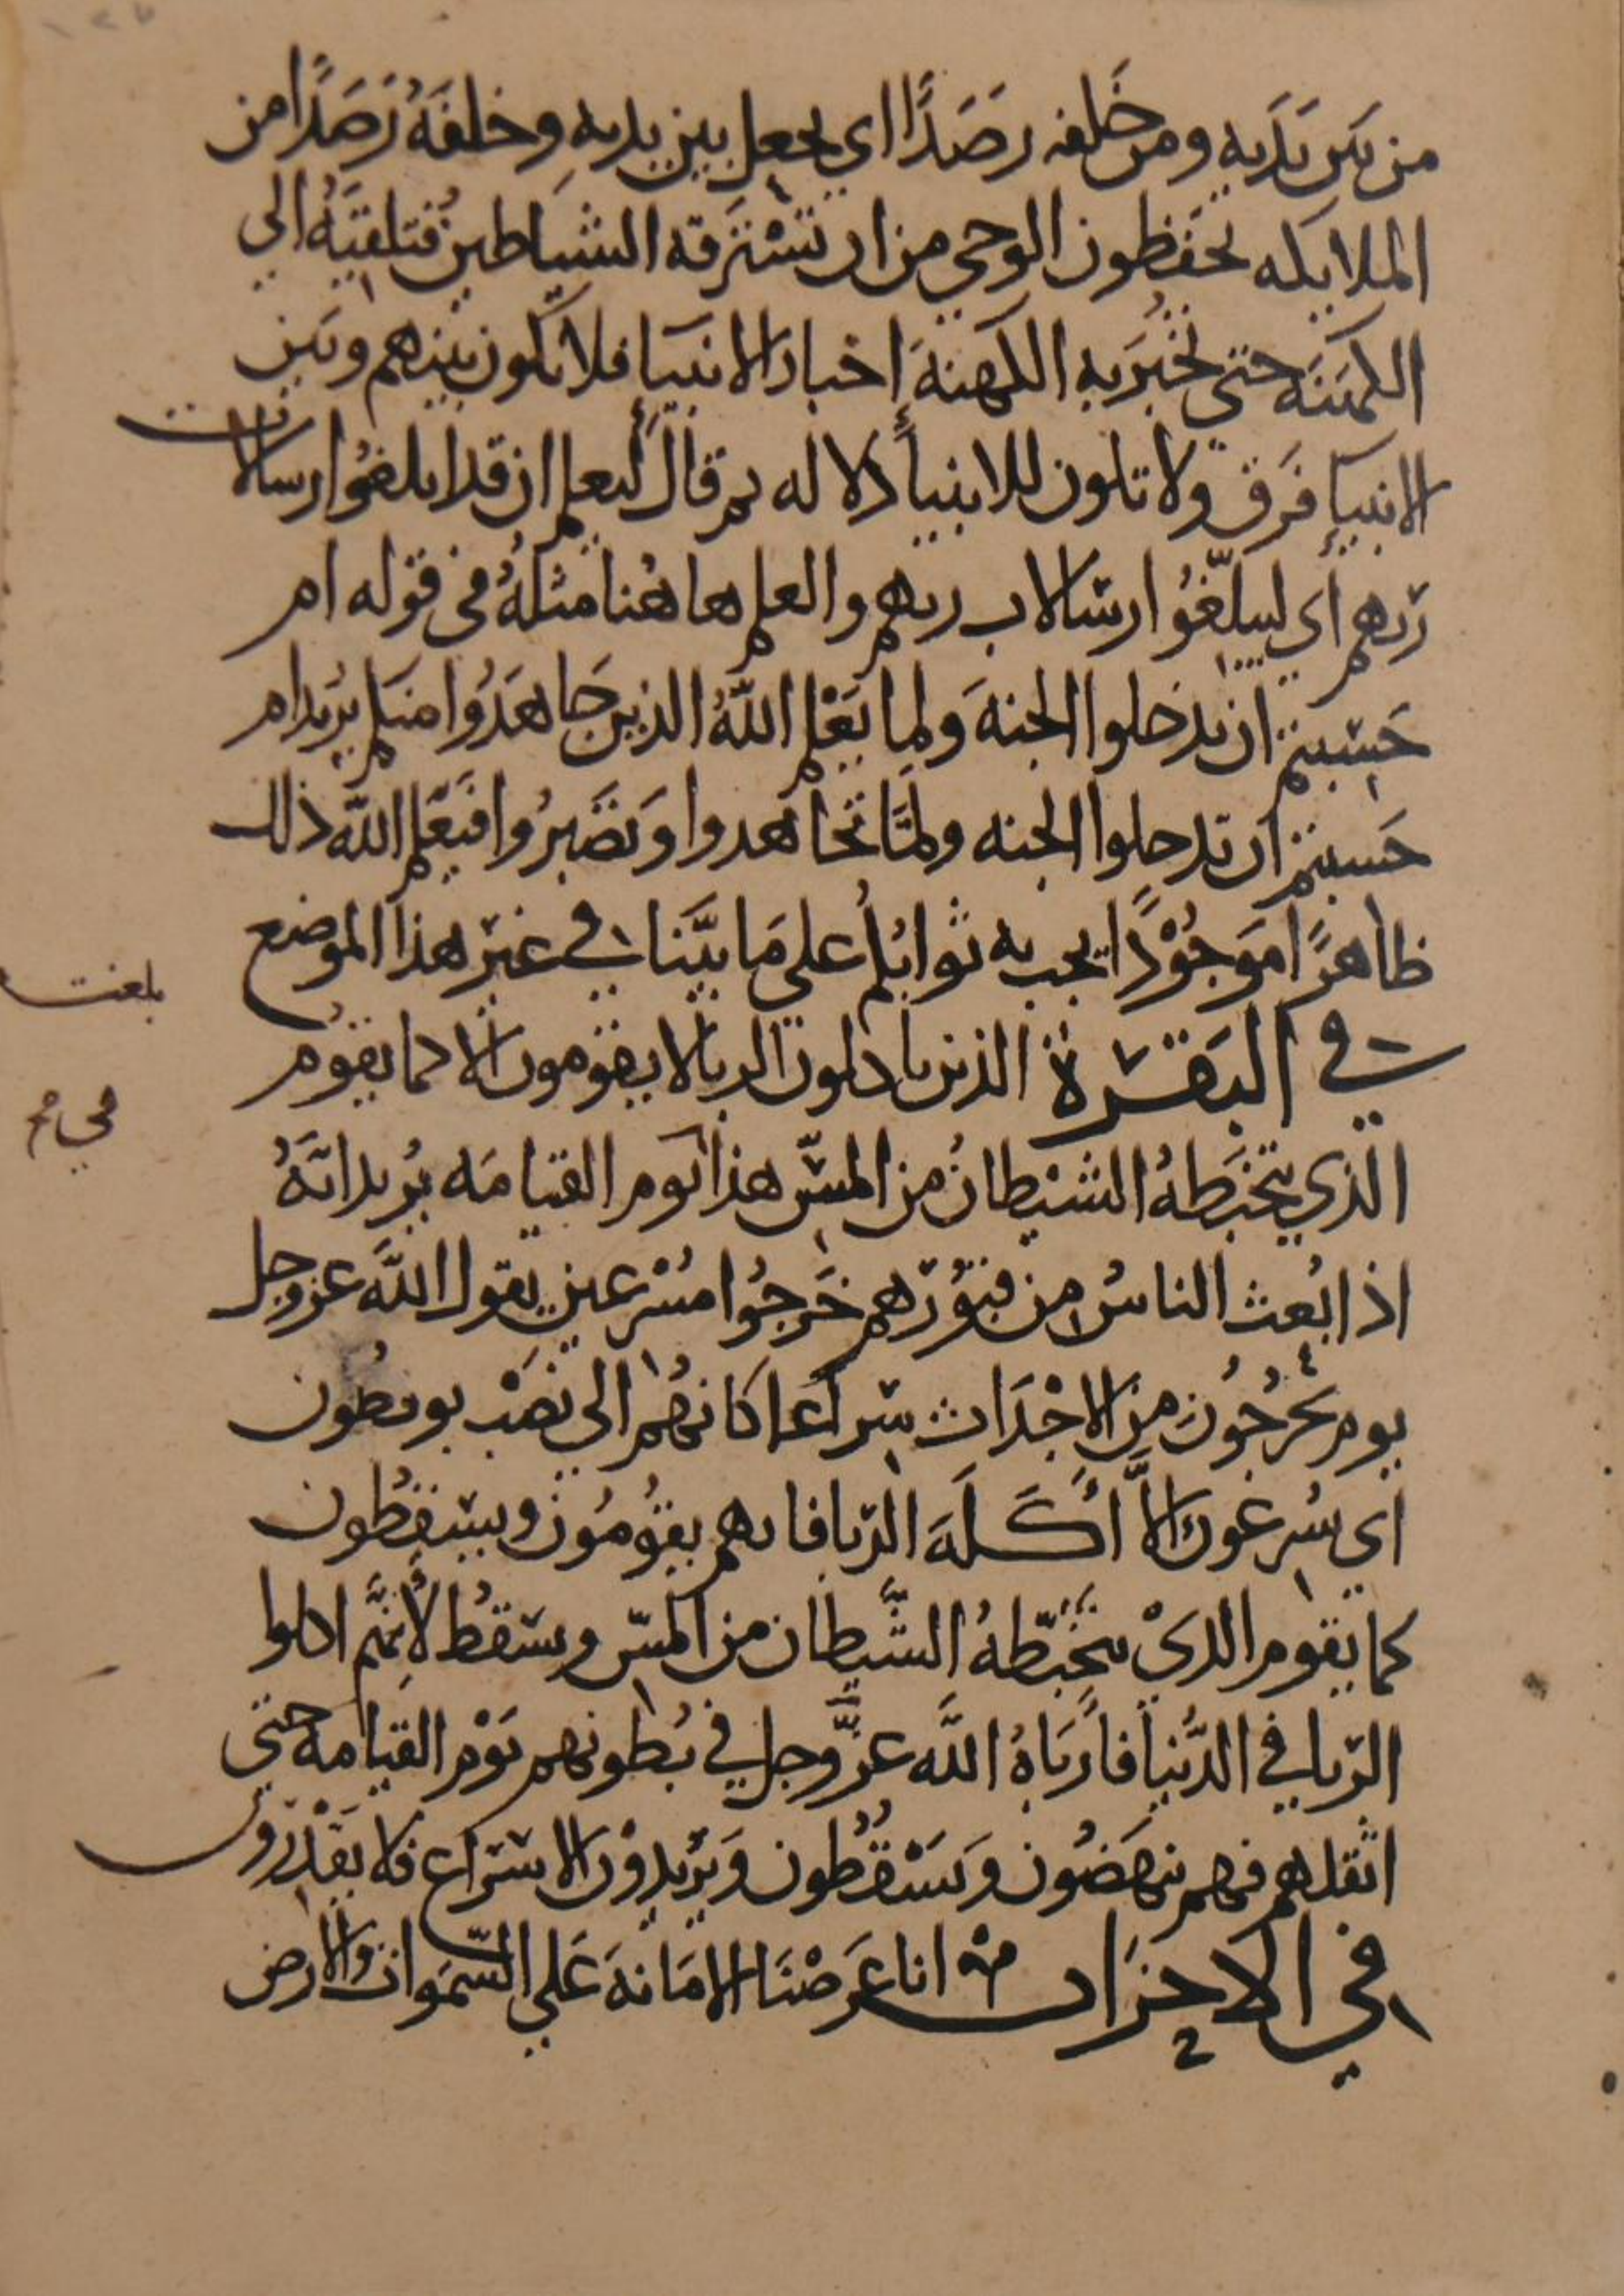 من بَين يَدَيهِ ومن خَلفه رصَدًا اي يجعل بين يديه وخلفَهُ رَصَدًا من
الملايكه يحفَظون الوحي من ان تسْترقه الشياطين فتلقيَهُ الي
الكهَنَه حتي تُخبرَ به الكهنهَ اخبار الانبيآ فلا يكون بينهم وبَين
الانبيآءِ فَرق ولا تكون للانبيآء دلاله ثم قال ليعلم ان قد ابلغُوا رسالات
رَبهم أي ليبلّغُوا رسالات ربهم والعلم هاهُنا مثلهُ في قوله ام
حَسِبتم ان تدخلوا الجنهَ ولما يَعْلم اللهُ الذين جَاهَدُوا منكم يُريد ام
حَسبتم ان تدخلوا الجنه ولمَّا تجاهدوا وَتصَبرُوا فيَعَلم اللّه ذلك
ظاهرًا مَوجُوْدًا يجب به ثوابُكُم علي مَا بيَّنا في غير هذا الموضع
في البَقَرة الذين ياكلون الربا لا يقومون الا كما يقوُم
الذي يتخبَطهُ الشيْطانُ من المسّ هذا يَوم القيامَه يُريد انَّهُ
اذا بُعث الناسُ من قبُوُرهم خَرجُوا مسْرعين يقول اللَّه عز وجل
يوم يَخرجُونَ من الاجْدَاث سِراعَا كانهُم الي نصْب يوفضُون
أي يسُرعُون الاَّ أكَلَه الرّبا فانهم يقوُمُون ويسَقطُون
كما يَقوم الذيْ يتخَبّطهُ الشَّيطان من المسّ ويسَقطُ لأنهَّم اكلوا
الرّبا في الدُّنيا فارَبَاهُ اللَّه عزَّ وجل في بُطونهم يَوْم القيامه حتي
اثقلهم فهم ينهَضُون وَيَسْقُطون وَيرُيدوْن الاسَراع فلا يَقْدرُون
في الاحزاب منه انا عَرَضْنَا الامَانهَ عَلي السّمَوات والارض
بلغت